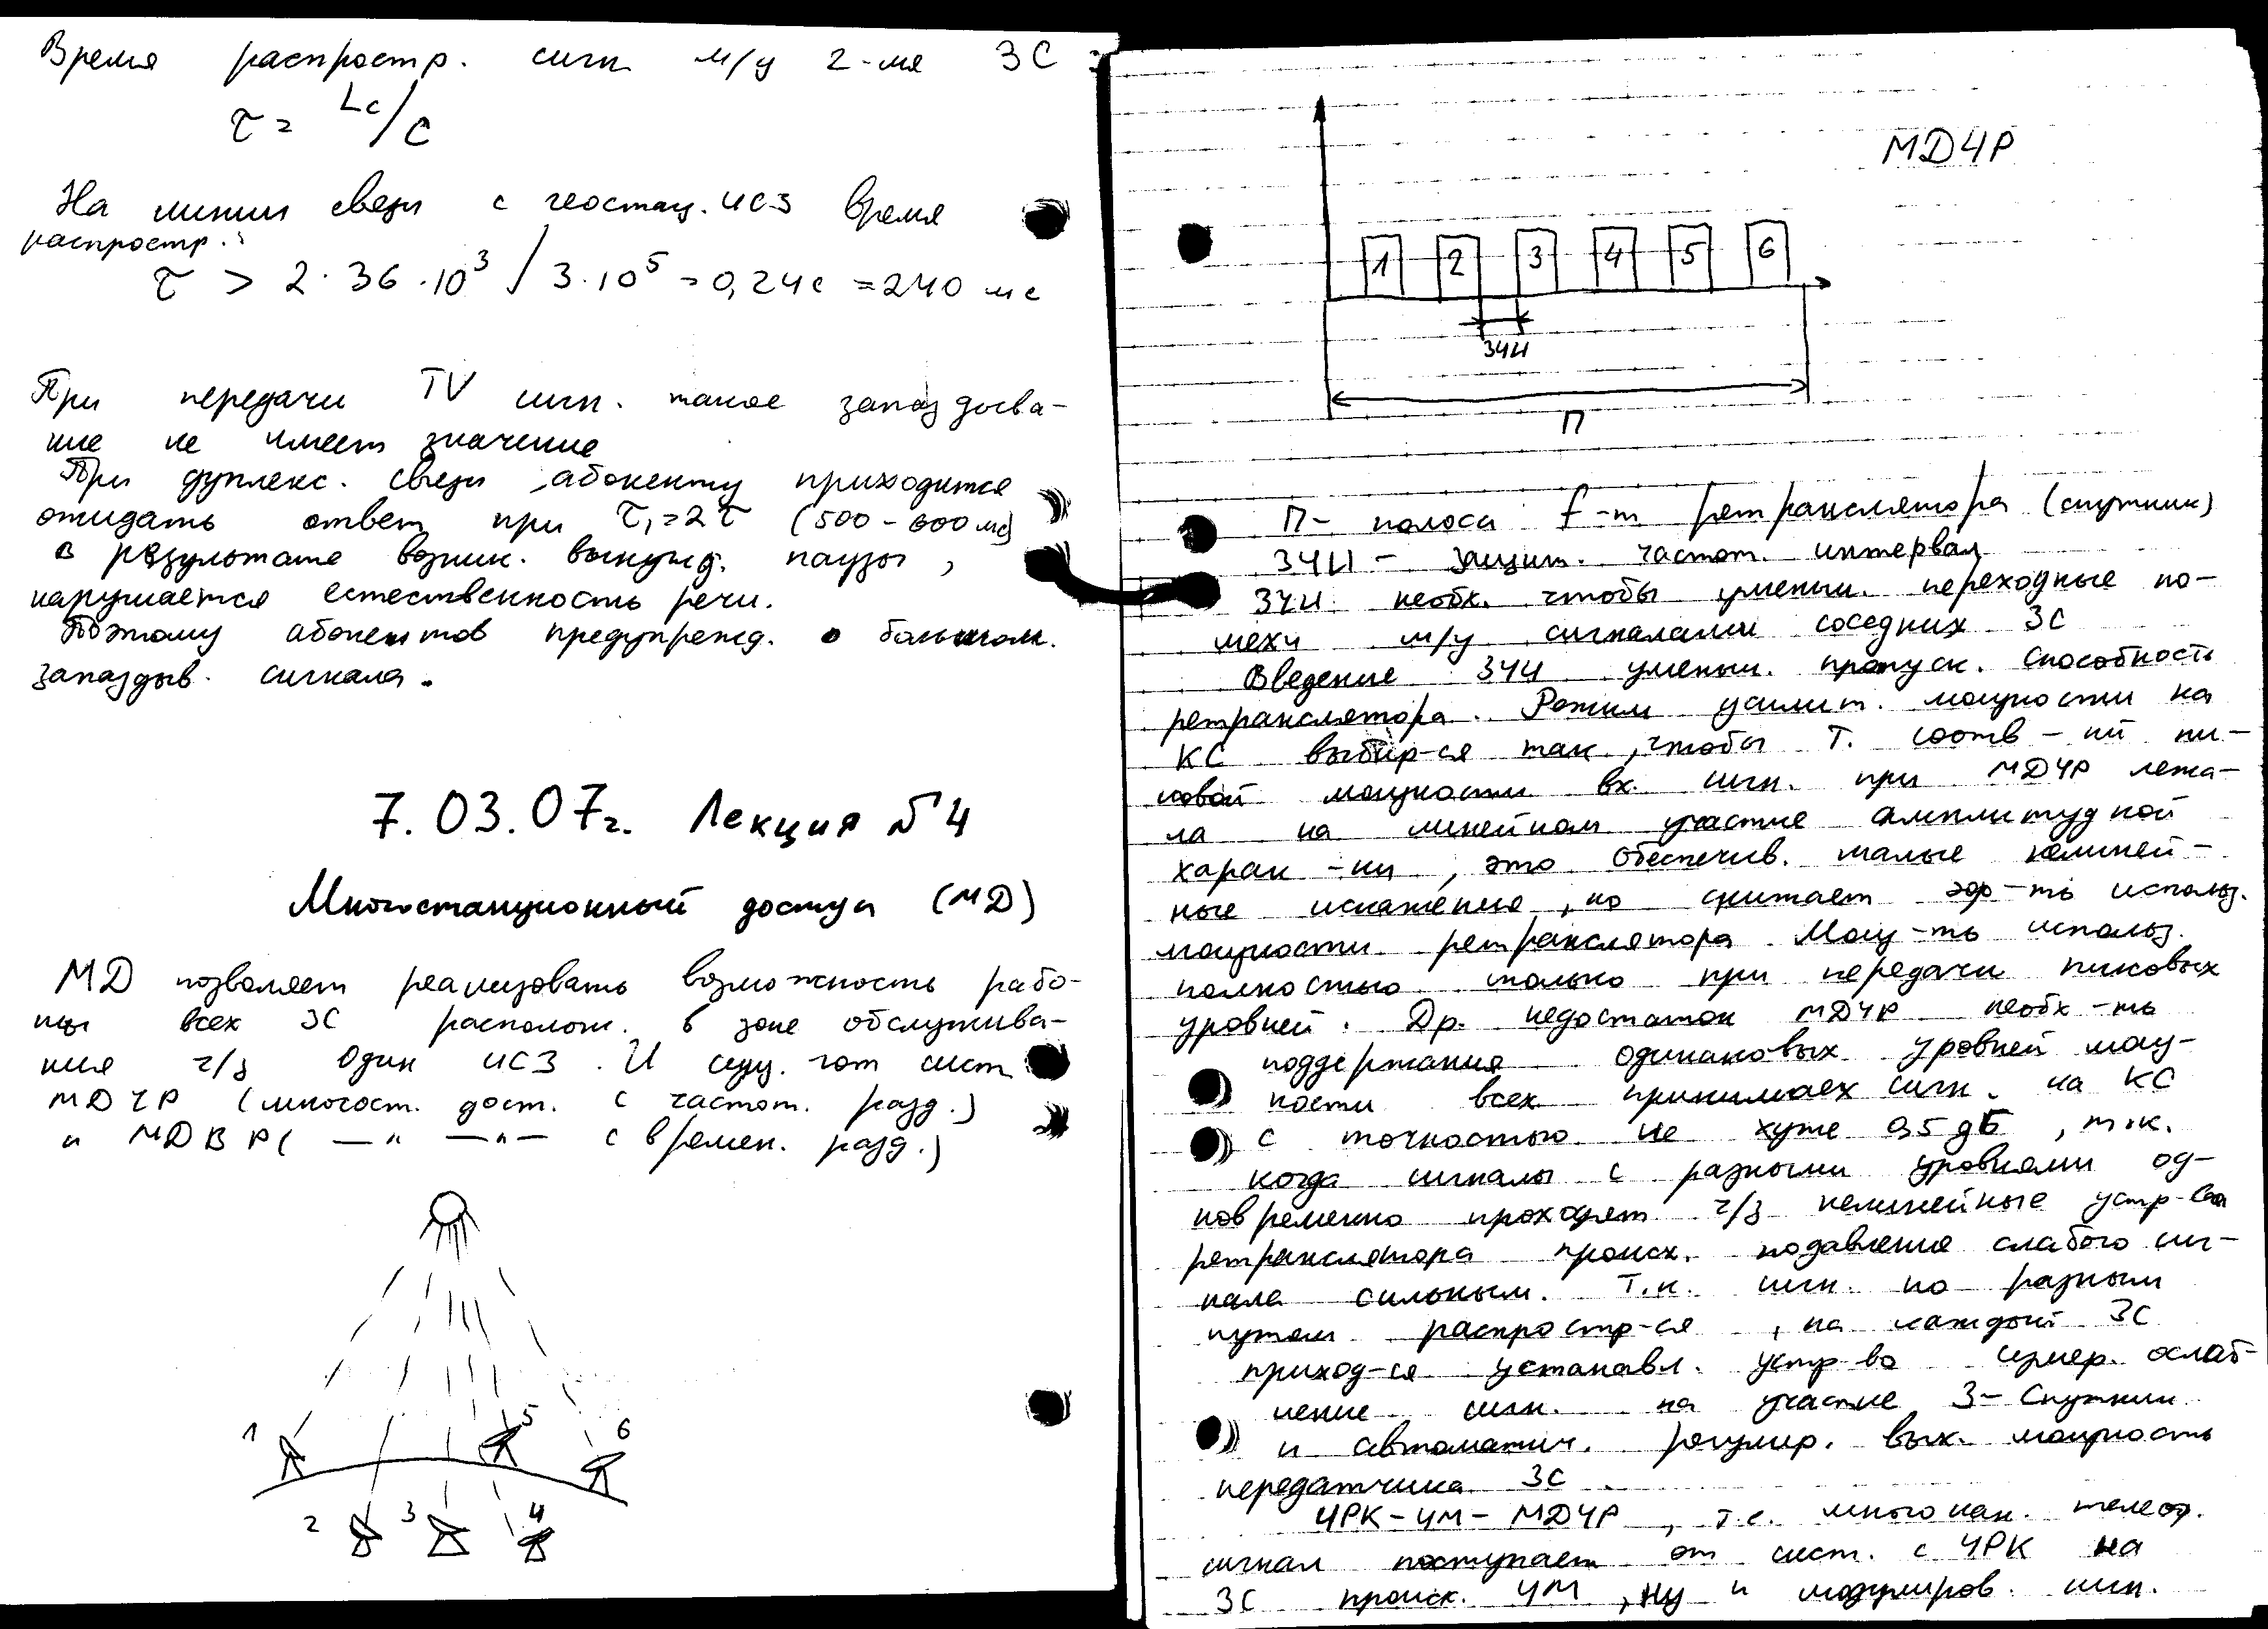 Время распростр. сигн м/у 2-мя ЗС
τ = Lc/C
На линии связи с геостац. ИСЗ время
распростр.:
τ > 2·36·10³ / 3·10⁵ = 0,24с = 240 мс
При передачи TV сигн. такое запаздыва-
ние не имеет значение
При дуплекс. связи абоненту приходится
ожидать ответ при τ₁=2τ (500-600мс)
в результате возник. вынужд. паузы,
нарушается естественность речи.
Поэтому абонентов предупрежд. о большом.
запаздыв. сигнала.
7.03.07г. Лекция №4
Многостанционный доступ (МД)
МД позволяет реализовать возможность рабо-
ты всех ЗС располож. в зоне обслужива-
ния ч/з один ИСЗ. И сущ. чот сист
МДЧР (многост. дост. с частот. разд.)
и МДВР( —"— —"— с времен. разд.)
1
5
6
2
3
4
МДЧР
1 2 3 4 5 6
ЗЧИ
П
П- полоса f-т ретранслятора (спутник)
ЗЧИ - защит. частот. интервал
ЗЧИ необх. чтобы уменьш. переходные по-
мехи м/у сигналами соседних ЗС
Введение ЗЧИ уменьш. пропуск. способность
ретранслятора. Режим усилит. мощности на
КС выбир-ся так, чтобы т. соотв-ий пи-
ковой мощности вх. сигн. при МДЧР лежа-
ла на линейном участке амплитудной
харак-ки, это обеспечив. малые нелиней-
ные искажения, но снижает эф-ть использ.
мощности ретранслятора. Мощ-ть использ.
полностью только при передачи пиковых
уровней. Др. недостаток МДЧР необх-ть
поддержания одинаковых уровней мощ-
ности всех принимаех сигн. на КС
с точностью не хуже 0,5 дБ, т.к.
когда сигналы с разными уровнями од-
новременно проходят ч/з нелинейные устр-ва
ретранслятора происх. подавление слабого сиг-
нала сильным. Т.к. сигн. по разным
путям распростр-ся, на каждый ЗС
приход-ся установл. устр-во измер. ослаб-
ление сигн. на участке З-Спутник
и автоматич. регулир. вых. мощность
передатчика ЗС
ЧРК-ЧМ-МДЧР, т.е. многокан. телеф.
сигнал поступает от сист. с ЧРК на
ЗС происх. ЧМ, ну и модулиров. сигн.